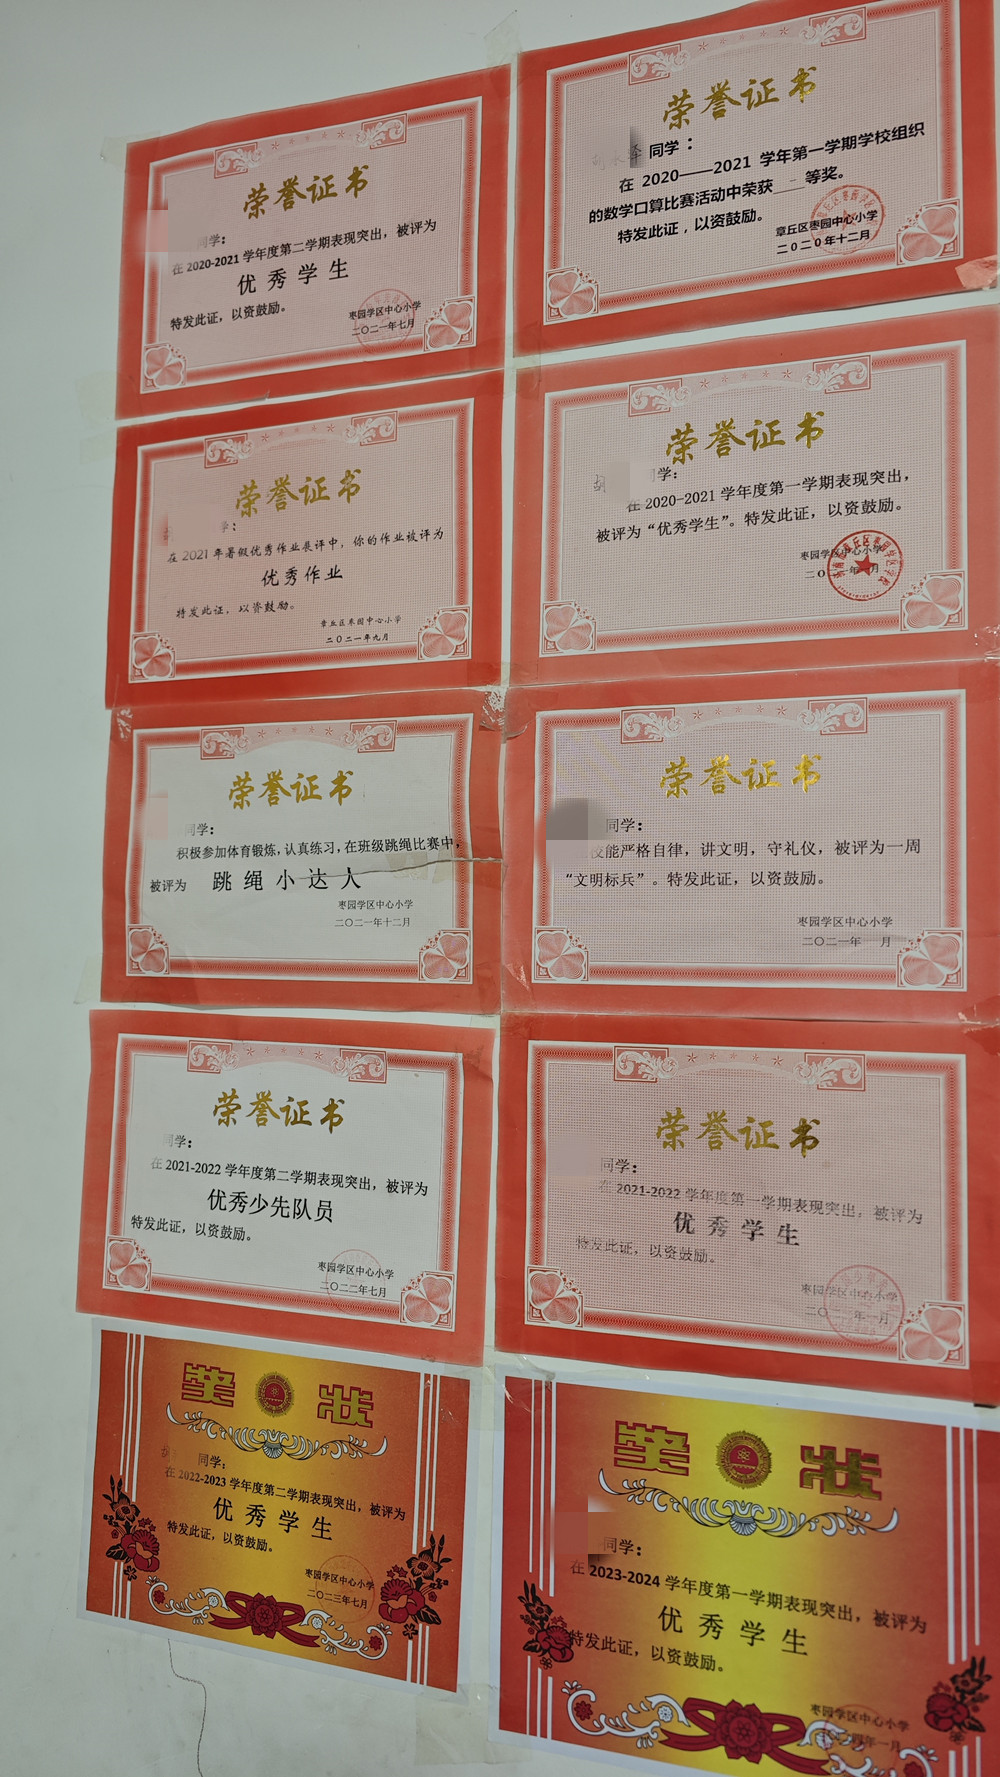 荣誉证书
同学：
在 2020-2021 学年度第二学期表现突出，被评为
优秀学生
特发此证，以资鼓励。
枣园学区中心小学
二〇二一年七月
荣誉证书
同学：
在 2020——2021 学年第一学期学校组织
的数学口算比赛活动中荣获 等奖。
特发此证，以资鼓励。
章丘区枣园中心小学
二0二0年十二月
荣誉证书
学：
在 2021 年暑假优秀作业展评中，你的作业被评为
优秀作业
特发此证，以资鼓励。
章丘区枣园中心小学
二0二一年九月
荣誉证书
胡 同学：
在 2020-2021 学年度第一学期表现突出，
被评为“优秀学生”。特发此证，以资鼓励。
枣园学区中心小学
二0 一年 月
荣誉证书
同学：
积极参加体育锻炼，认真练习，在班级跳绳比赛中，
被评为 跳绳小达人
枣园学区中心小学
二〇二一年十二月
荣誉证书
同学：
校能严格自律，讲文明，守礼仪，被评为一周
“文明标兵”。特发此证，以资鼓励。
枣园学区中心小学
二〇二一年 月
荣誉证书
同学：
在 2021-2022 学年度第二学期表现突出，被评为
优秀少先队员
特发此证，以资鼓励。
枣园学区中心小学
二〇二二年七月
荣誉证书
同学：
在 2021-2022 学年度第一学期表现突出，被评为
优秀学生
特发此证，以资鼓励。
枣园学区中心小学
二〇二 年一月
奖状
胡 同学：
在 2022-2023 学年度第二学期表现突出，被评为
优秀学生
特发此证，以资鼓励。
枣园学区中心小学
二〇二三年七月
奖状
同学：
在 2023-2024 学年度第一学期表现突出，被评为
优秀学生
特发此证，以资鼓励。
枣园学区中心小学
四年一月